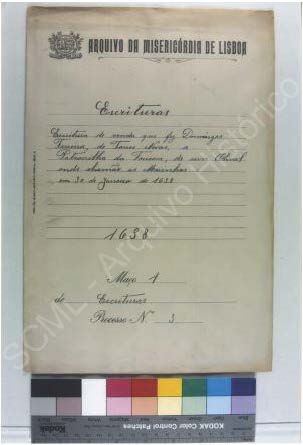 ARQUIVO DA MISERICÓRDIA DE LISBOA
Escrituras
Escritura de venda que fez Domingos
Ferreira, de Torres Novas, a
Petronilha da Fonseca, de um Olival
onde chamão as Marinhas
em 30 de Janeiro de 1638
1638
Maço 1
de Escrituras
Processo Nº 3
SCML - Arquivo Histórico
KODAK Color Control Patches